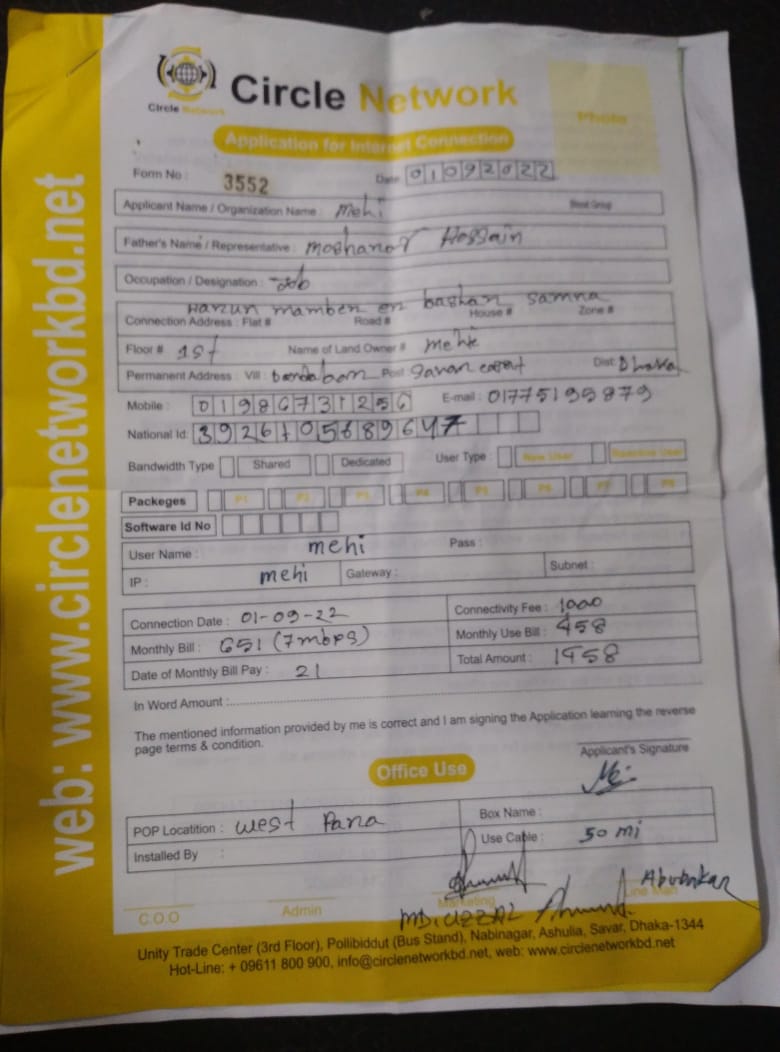 Circle Network
Circle Network
Photo
Application for Internet Connection
Form No : 3552 Date 01092022
Applicant Name / Organization Name : Mehi Blood Group
Father's Name / Representative : Hossain
Occupation / Designation : Job
Harun
Connection Address : Flat # Road # House # Zone #
Floor # 1st Name of Land Owner # Mehi
Permanent Address : Vill : Post Dist: Dhaka
Mobile : E-mail : 01775195879
National Id :
Bandwidth Type Shared Dedicated User Type : New User Reactive User
Packeges P1 P2 P3 P4 P5 P6 P7 P8
Software Id No
User Name : mehi Pass :
IP : mehi Gateway : Subnet :
Connection Date : 01-09-22 Connectivity Fee : 1000
Monthly Bill : 651 (7mbps) Monthly Use Bill : 458
Date of Monthly Bill Pay : 21 Total Amount : 1458
In Word Amount :
The mentioned information provided by me is correct and I am signing the Application learning the reverse
page terms & condition.
Applicant's Signature
Office Use
POP Locatition : West Para Box Name :
Installed By Use Cable : 50 mi
Abubakar
C.O.O Admin Marketing Line Man
MD. UZZAL
Unity Trade Center (3rd Floor), Pollibiddut (Bus Stand), Nabinagar, Ashulia, Savar, Dhaka-1344
Hot-Line: + 09611 800 900, info@circlenetworkbd.net, web: www.circlenetworkbd.net
web: www.circlenetworkbd.net